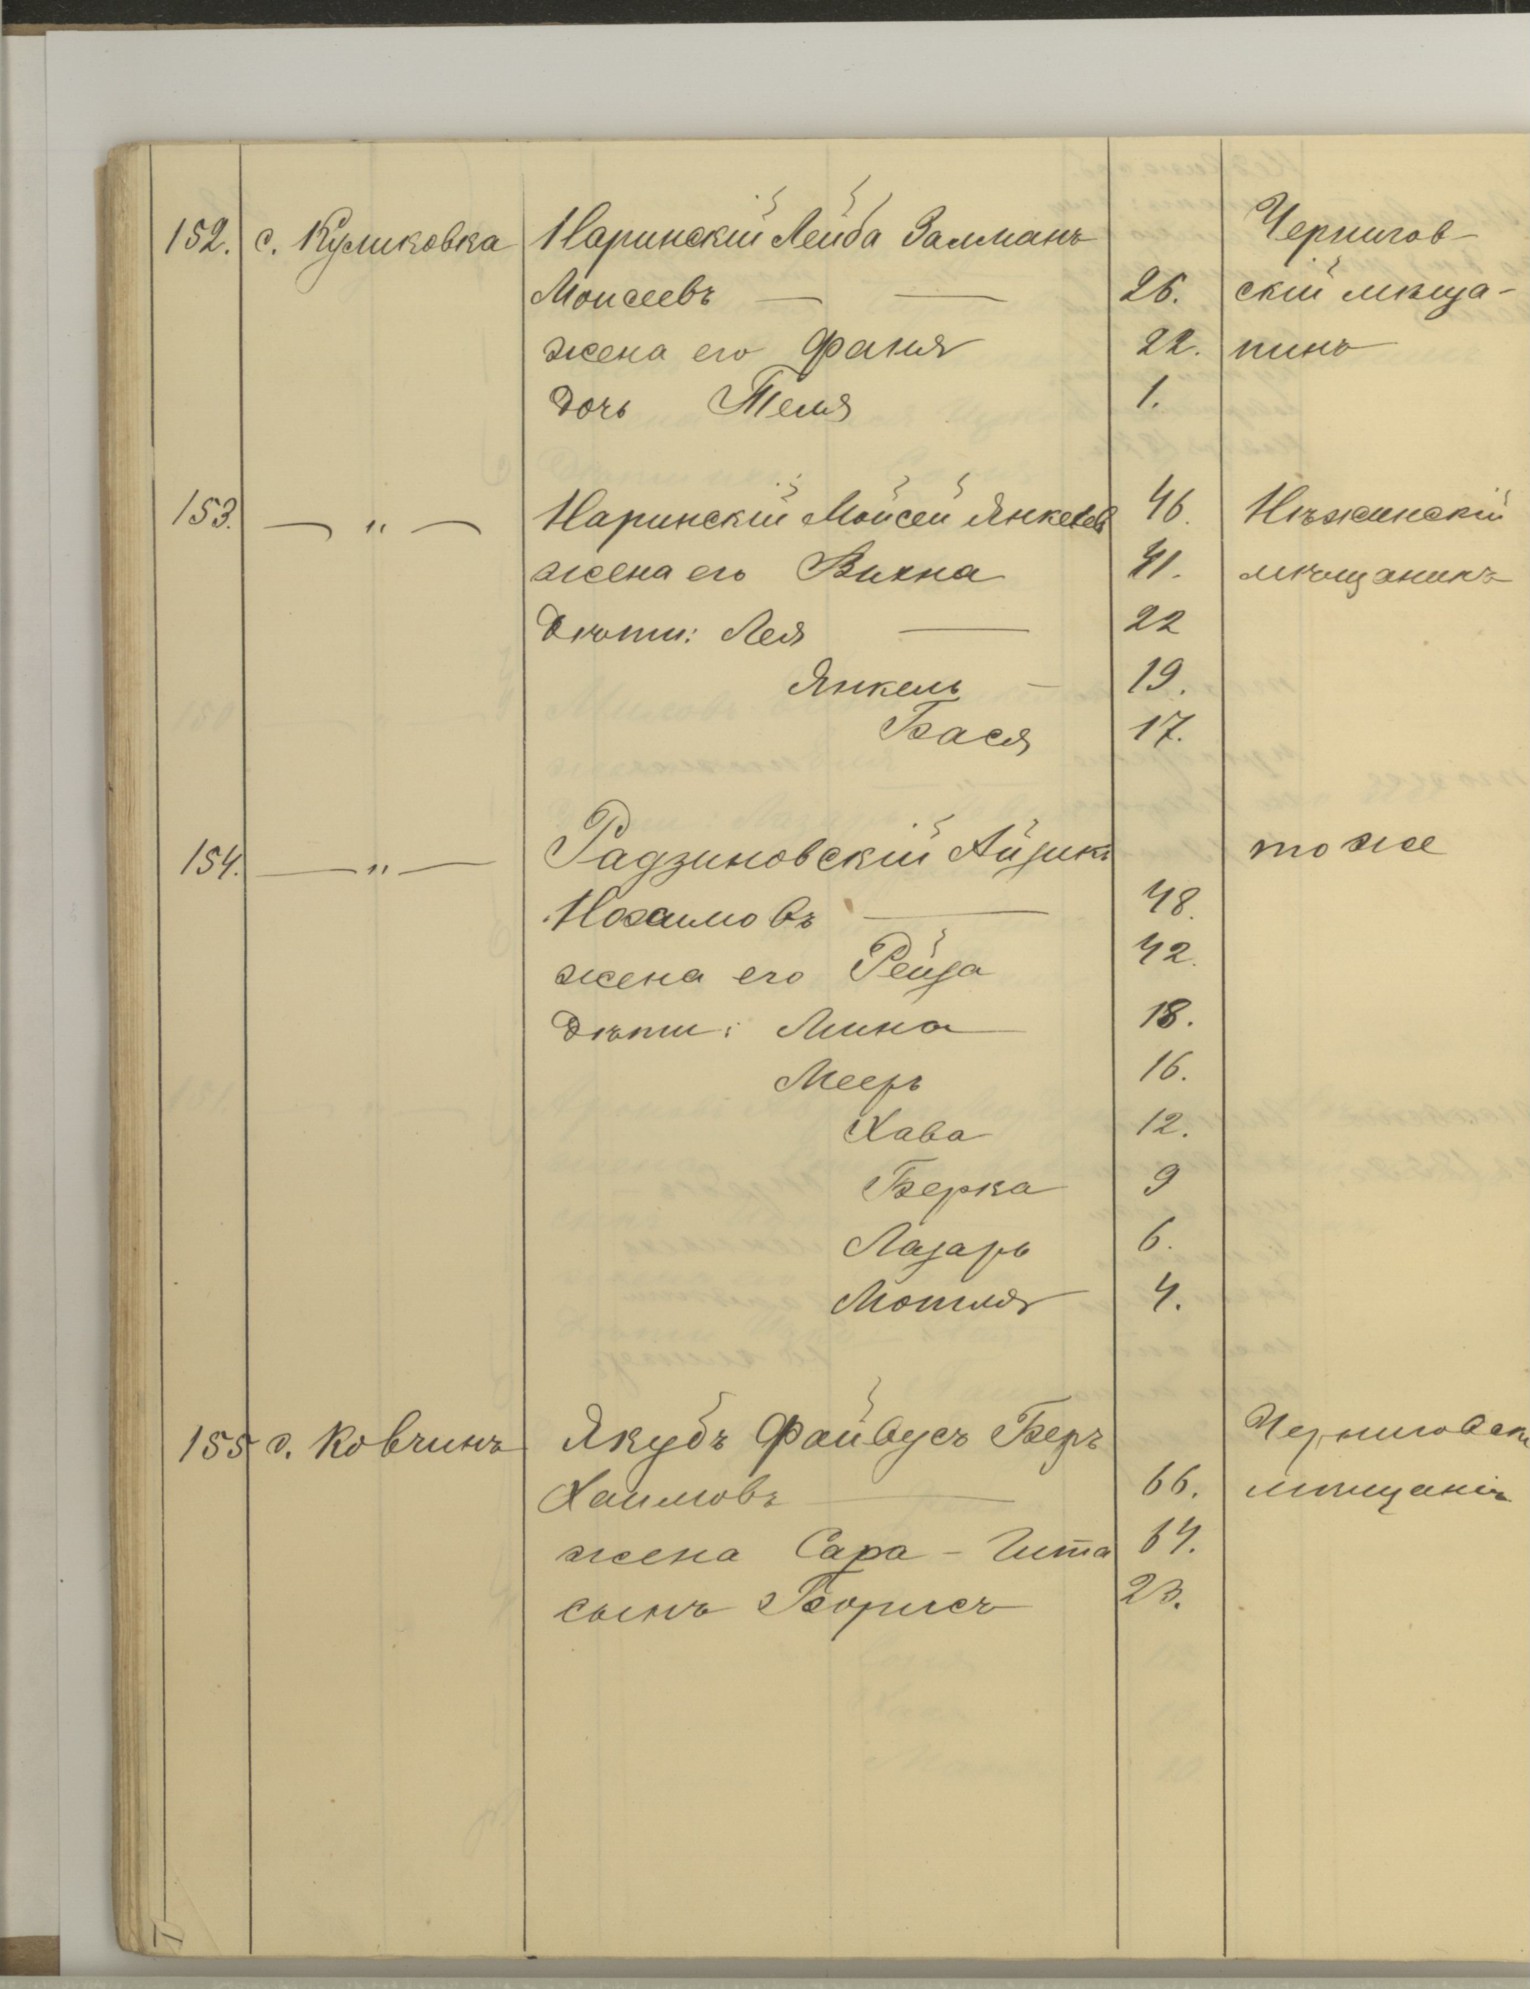 152. с. Куликовка Наринскій Лейба Залманъ Чернигов-
Моисеевъ — — 26. скій мѣща-
жена его Фаня 22. нинъ
дочь Теля 1.
153. — " — Наринскій Мойсей Янкелев 46. Нѣжинскій
жена его Вихна 41. мѣщанинъ
Дѣти: Лея — 22
Янкель — 19.
Бася 17.
154. — " — Радзиновскій Айзикъ тоже
Нохимовъ — 48.
жена его Рейза 42.
Дѣти: Мина 18.
Мееръ 16.
Хава 12.
Берка 9
Лазарь 6.
Мотля 4.
155 с. Ковчинъ Якубъ Файвусъ Беръ Черниговскі
Хаимовъ — 66. мѣщанін
жена Сара - Гита 64.
сынъ Борисъ 23.